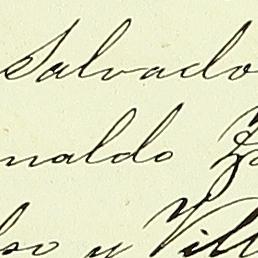 Salvado
naldo Z
lso y Vill